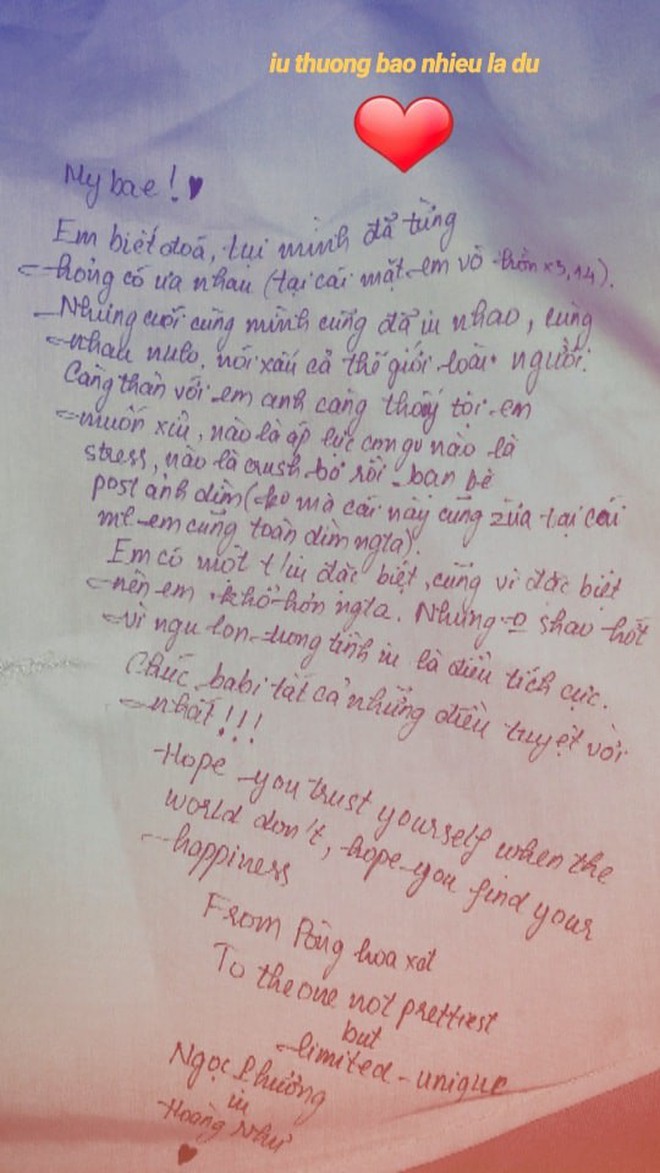 iu thuong bao nhieu la du
My bae! ♥
Em biết đoá, tụi mình đã từng
hỏng có ưa nhau (tại cái mặt em vô hồn x3,14).
Nhưng cuối cùng mình cũng đã iu nhao, cùng
nhau nuto, nói xấu cả thế giới loài người.
Càng thân với em anh càng thấy tội em
muốn xỉu, nào là áp lực con gv nào là
stress, nào là crush bơ rồi bạn bè
post ảnh dìm (ko mà cái này cũng zừa tại cái
mẹt em cũng toàn dìm ngta).
Em có một thứ đặc biệt, cũng vì đặc biệt
nên em khổ hơn ngta. Nhưng o shao hết
vì ngu lon tương tình iu là điều tích cực.
Chúc babi tất cả những điều tuyệt vời
nhất!!!
Hope you trust yourself when the
world don't, hope you find your
happiness
From hoa xát
To the one not prettiest
but
limited - unique
Ngọc Phường
iu
Hoàng Như
♥